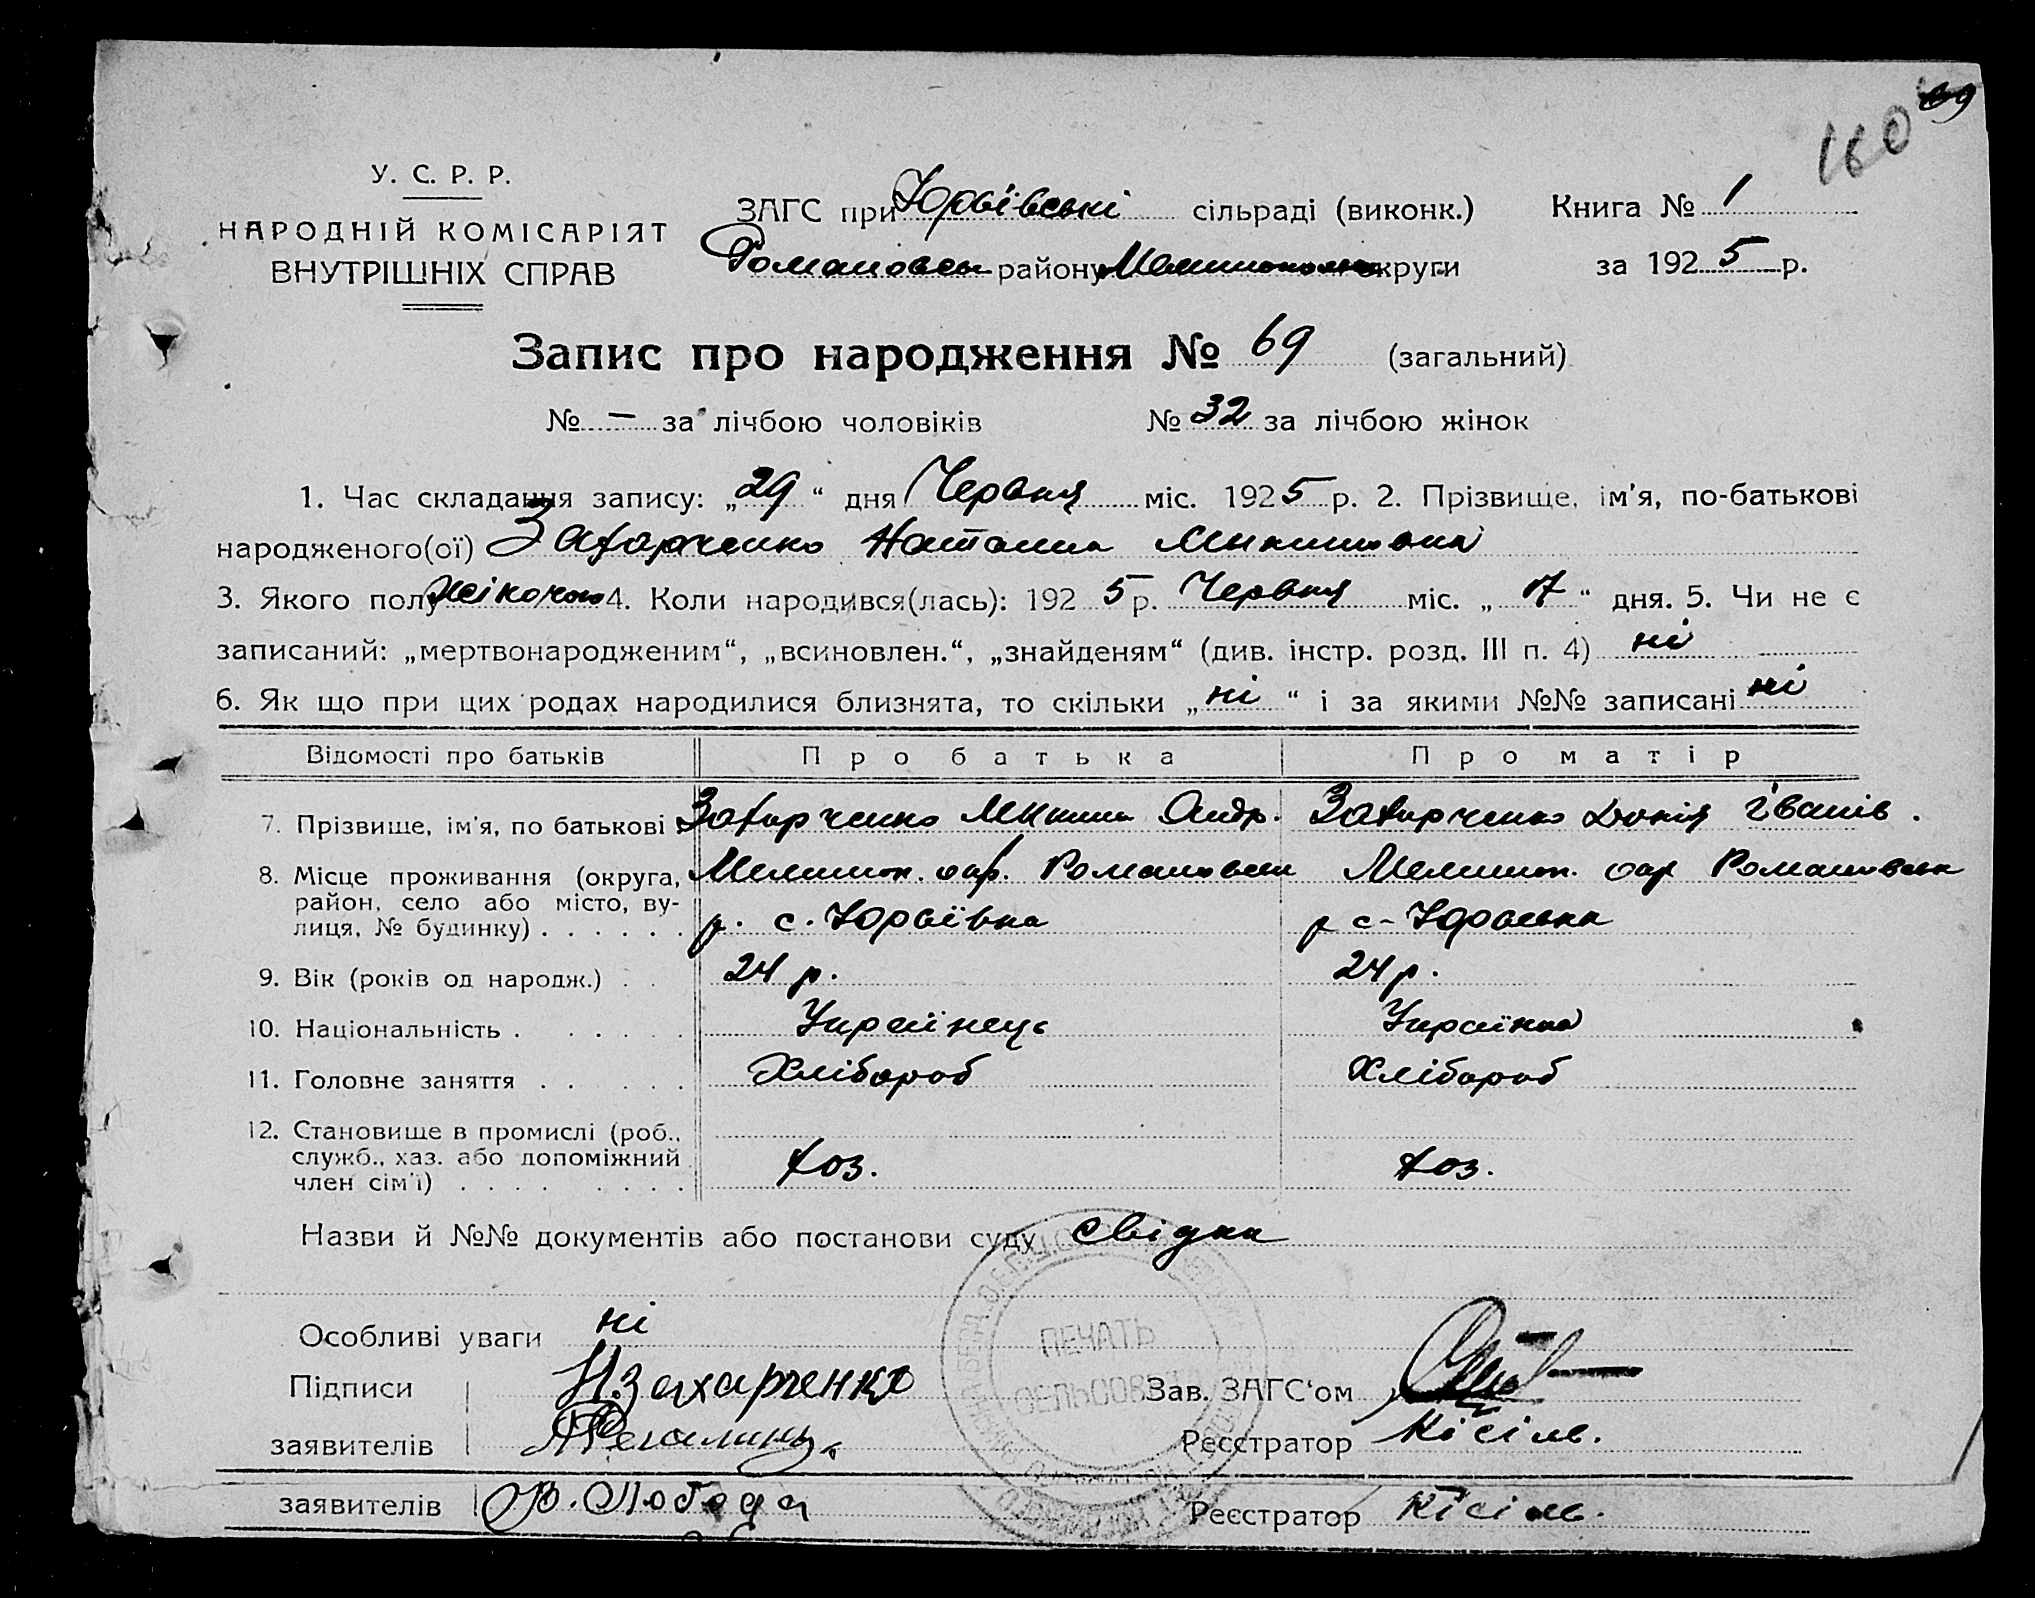 69
160
У. С. Р. Р.
НАРОДНІЙ КОМІСАРІЯТ
ВНУТРІШНІХ СПРАВ
ЗАГС при Юрьївські сільраді (виконк.) Книга № 1
Романовськ району Мелитопольськ округи за 1925 р.
Запис про народження № 69 (загальний)
№ — за лічбою чоловіків № 32 за лічбою жінок
1. Час складання запису: „29“ дня Червня міс. 1925 р. 2. Прізвище, ім'я, по-батькові
народженого(ої) Захарченко Наталия Микитовна
3. Якого полу жіночого 4. Коли народився(лась): 1925 р. Червня міс. „17“ дня. 5. Чи не є
записаний: „мертвонародженим“, „всиновлен.“, „знайденям“ (див. інстр. розд. III п. 4) ні
6. Як що при цих родах народилися близнята, то скільки „ні“ і за якими №№ записані ні
Відомості про батьків Про батька Про матір
7. Прізвище, ім'я, по батькові Захарченко Микита Андр. Захарченко Докія Іванів.
8. Місце проживання (округа, Мелитоп. окр. Романовськ Мелитоп. окр Романовськ
район, село або місто, ву-
лиця, № будинку) . . . . . . р. с. Юрьївка р с-Юрьевка
9. Вік (років од народж.) . . 24 р. 24 р.
10. Національність . . . . . . Украінець Українка
11. Головне заняття . . . . . Хлібороб Хлібороб
12. Становище в промислі (роб.,
служб., хаз. або допоміжний хоз. хоз.
член сім'ї) . . . . . . . .
Назви й №№ документів або постанови суду свідки
Особливі уваги ні
ПЕЧАТЬ
СЕЛЬСОВЕТА
Підписи Н.Захарченко Зав. ЗАГС'ом
заявителів Реєстратор Кісіль.
заявителів В. Лобода Реєстратор Кісіль.